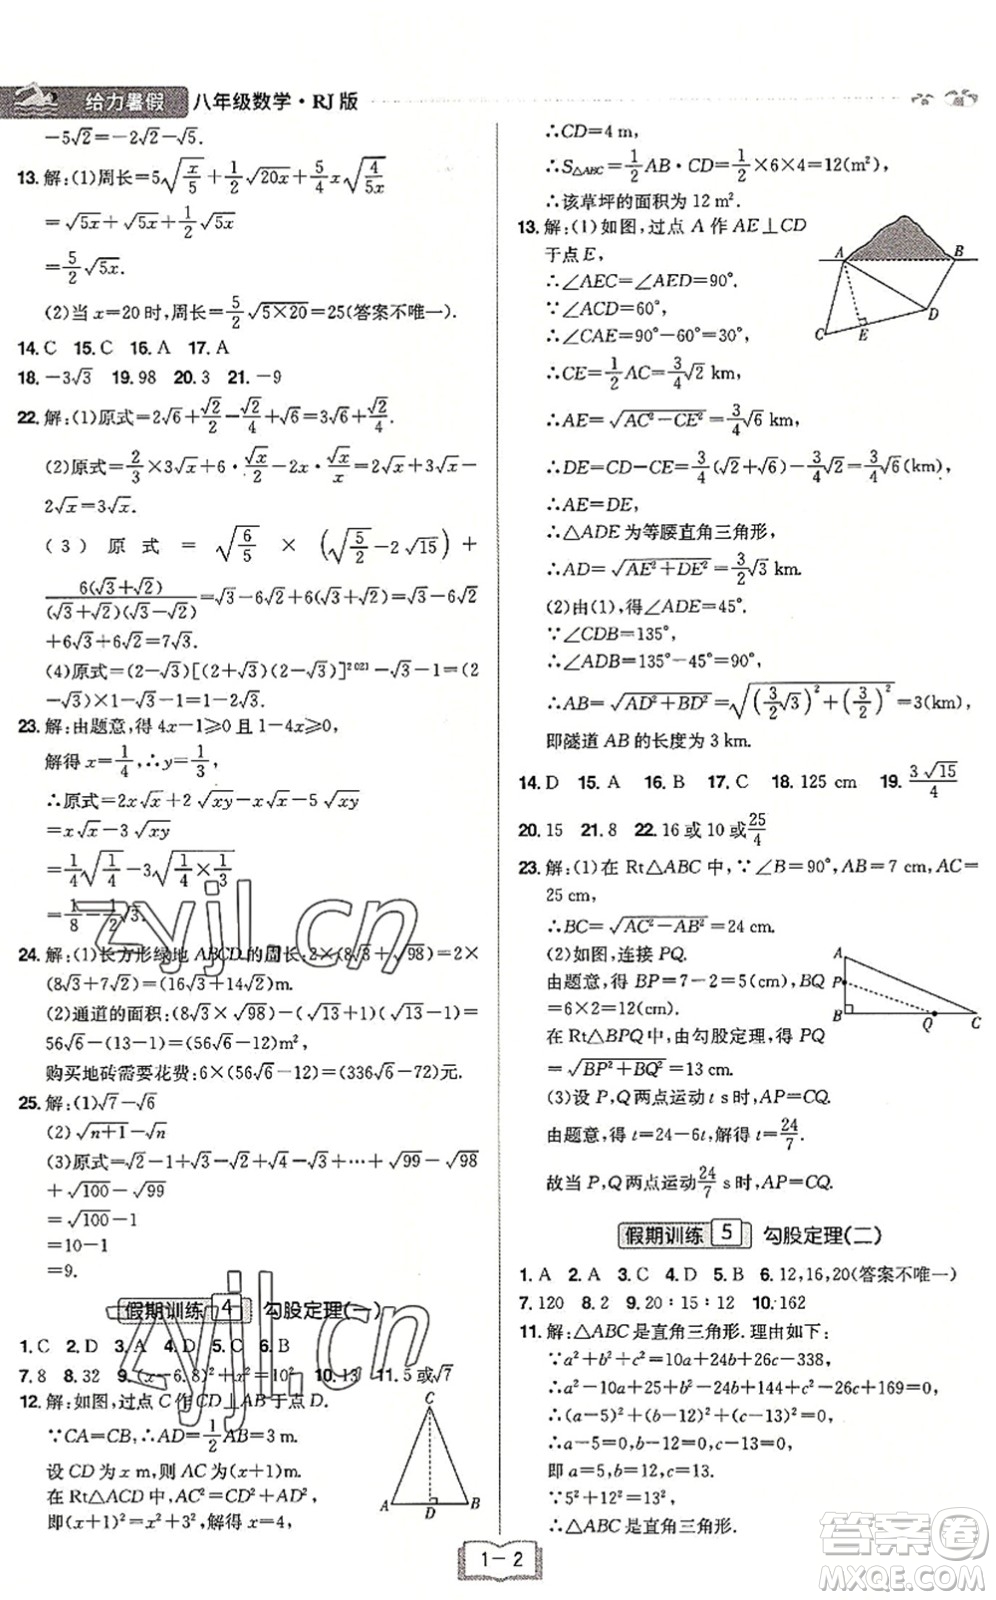 给力暑假 八年级数学·RJ版
−5√2=−2√2−√5.
13. 解:(1)周长=5√(x/5)+1/2√(20x)+5/4x√(4/(5x))
=√(5x)+√(5x)+1/2√(5x)
=5/2√(5x).
(2)当x=20时,周长=5/2√(5×20)=25(答案不唯一).
14. C 15. C 16. A 17. A
18. −3√3 19. 98 20. 3 21. −9
22. 解:(1)原式=2√6+√2/2−√2/4+√6=3√6+√2/4.
(2)原式=2/3×3√x+6·√x/2−2x·√x/x=2√x+3√x−
2√x=3√x.
(3)原式=√(6/5)×(√(5/2)−2√15)+
6(√3+√2)/((√3+√2)(√3−√2))=√3−6√2+6(√3+√2)=√3−6√2
+6√3+6√2=7√3.
(4)原式=(2−√3)[(2+√3)(2−√3)]²⁰²¹−√3−1=(2
−√3)×1−√3−1=1−2√3.
23. 解:由题意,得4x−1≥0且1−4x≥0,
解得x=1/4,∴y=1/3,
∴原式=2x√x+2√(xy)−x√x−5√(xy)
=x√x−3√(xy)
=1/4√(1/4)−3√(1/4×1/3)
=1/8−1/2√3.
24. 解:(1)长方形绿地ABCD的周长:2×(8√3+√98)=2×
(8√3+7√2)=(16√3+14√2)m.
(2)通道的面积:(8√3×√98)−(√13+1)(√13−1)=
56√6−(13−1)=(56√6−12)m²,
购买地砖需要花费:6×(56√6−12)=(336√6−72)元.
25. 解:(1)√7−√6
(2)√(n+1)−√n
(3)原式=√2−1+√3−√2+√4−√3+…+√99−√98
+√100−√99
=√100−1
=10−1
=9.
假期训练 4 勾股定理(一)
1. C 2. D 3. A 4. D 5. C 6. B
7. 8 8. 32 9. (x−6.8)²+x²=10² 10. 13 11. 5或√7
12. 解:如图,过点C作CD⊥AB于点D.
∵CA=CB,∴AD=1/2AB=3 m.
设CD为x m,则AC为(9−x)m.
在Rt△ACD中,AD²+CD²=AC²,
即(9−x)²=x²+3²,解得x=4,
C
A D B
∴CD=4 m,
∴S△ABC=1/2AB·CD=1/2×6×4=12(m²).
∴该草坪的面积为12 m².
13. 解:(1)如图,过点A作AE⊥CD
于点E,
∴∠AEC=∠AED=90°.
∵∠ACD=60°,
∴∠CAE=90°−60°=30°,
∴CE=1/2AC=3/4√2 km,
∴AE=√(AC²−CE²)=3/4√6 km,
∴DE=CD−CE=3/4(√2+√6)−3/4√2=3/4√6(km),
∴AE=DE,
∴△ADE为等腰直角三角形,
∴AD=√(AE²+DE²)=3/2√3 km.
(2)由(1),得∠ADE=45°.
∵∠CDB=135°,
∴∠ADB=135°−45°=90°,
∴AB=√(AD²+BD²)=√((3/2√3)²+(3/2)²)=3(km),
即隧道AB的长度为3 km.
A B
C E D
14. D 15. A 16. B 17. C 18. 125 cm 19. 3√15/4
20. 15 21. 8 22. 16或10或25/4
23. 解:(1)在Rt△ABC中,∵∠B=90°,AB=7 cm,AC=
25 cm,
∴BC=√(AC²−AB²)=24 cm.
(2)如图,连接PQ.
由题意,得BP=7−2=5(cm),BQ
=6×2=12(cm).
在Rt△BPQ中,由勾股定理,得PQ
=√(BP²+BQ²)=13 cm.
(3)设P,Q两点运动t s时,AP=CQ.
由题意,得t=24−6t,解得t=24/7.
故当P,Q两点运动24/7 s时,AP=CQ.
A
P
B Q C
假期训练 5 勾股定理(二)
1. A 2. A 3. C 4. D 5. B 6. 12,16,20(答案不唯一)
7. 120 8. 2 9. 20∶15∶12 10. 162
11. 解:△ABC是直角三角形.理由如下:
∵a²+b²+c²=10a+24b+26c−338,
∴a²−10a+25+b²−24b+144+c²−26c+169=0,
∴(a−5)²+(b−12)²+(c−13)²=0,
∴a−5=0,b−12=0,c−13=0,
即a=5,b=12,c=13.
∵5²+12²=13²,
∴△ABC是直角三角形.
1−2
zyjl.cn
答案圈
MXQE.COM